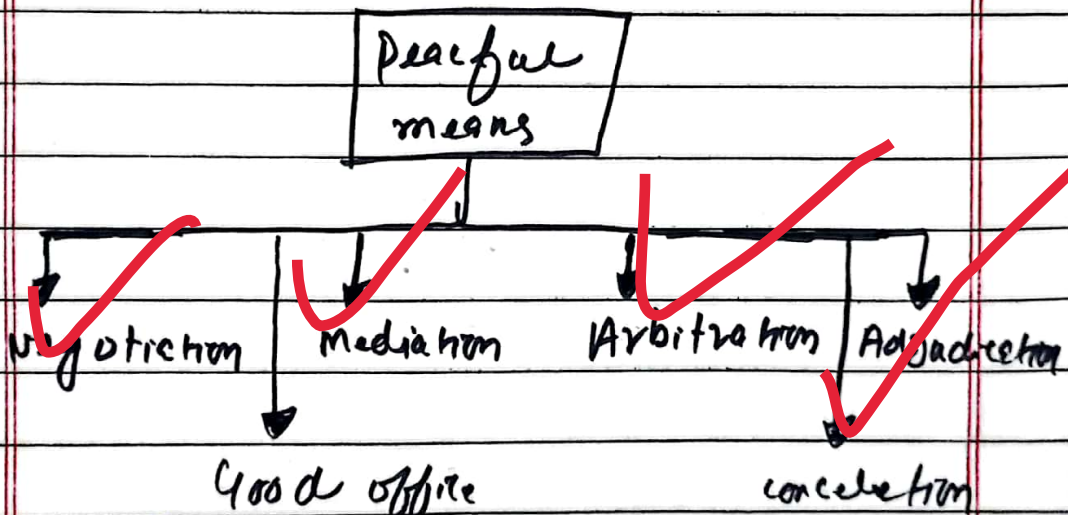 Peacful
means
Negotiction
Mediation
Arbitration
Adjudection
Good office
conceletion